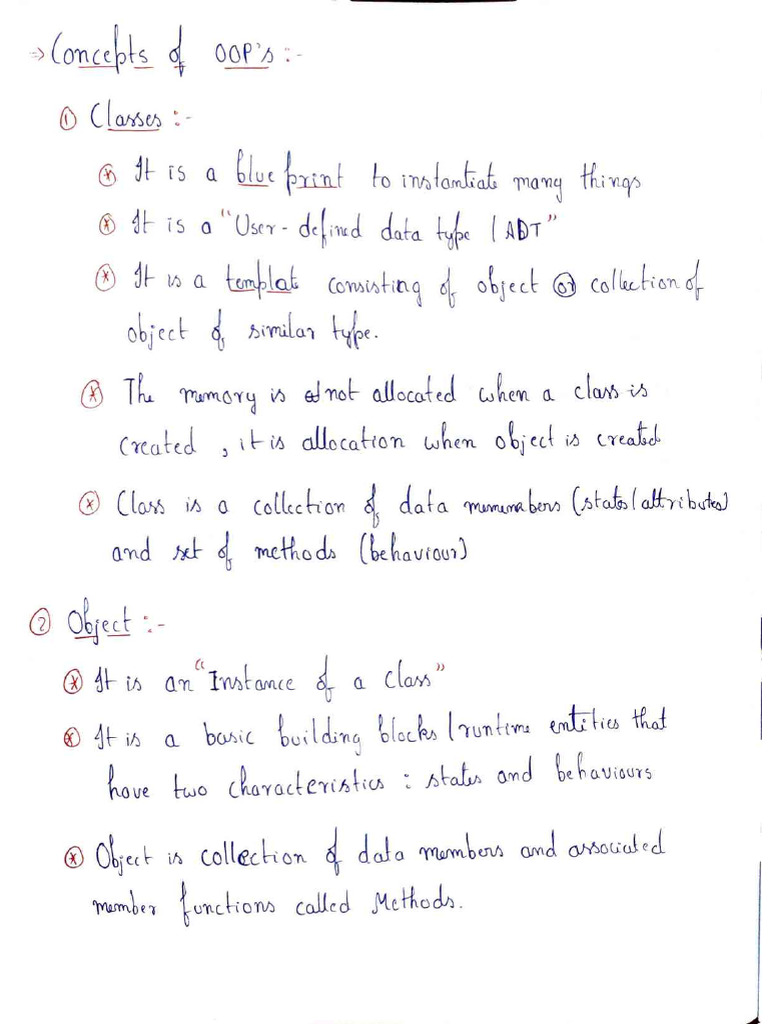 ⇒ Concepts of OOP's :-
① Classes :-
* It is a blue print to instantiate many things
* It is a "User-defined data type / ADT"
* It is a templat consisting of object or collection of
object of similar type.
* The memory is not allocated when a class is
created, it is allocation when object is created
* Class is a collection of data memembers (states/attributes)
and set of methods (behaviour)
② Object :-
* It is an "Instance of a class"
* It is a basic building blocks / runtime entities that
have two characteristics : states and behaviours
* Object is collection of data members and associated
member functions called Methods.